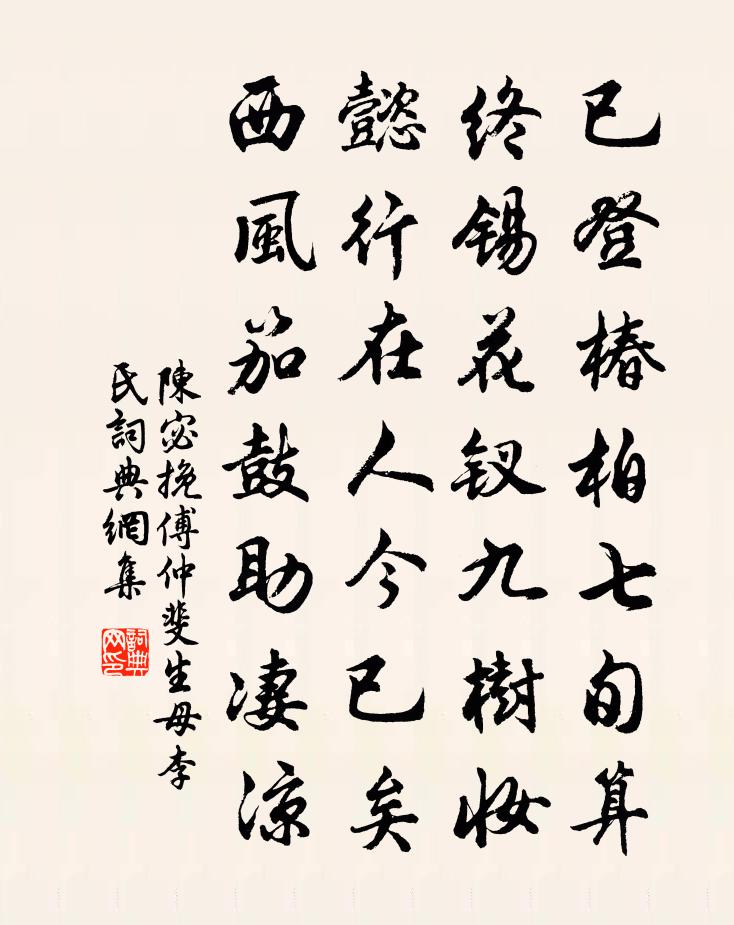 已登椿柏七旬算
终锡花钗九樹妝
懿行在人今已矣
西風笳鼓助凄涼
陳宓挽傅仲斐生母李
氏詞典網集
詞典网印